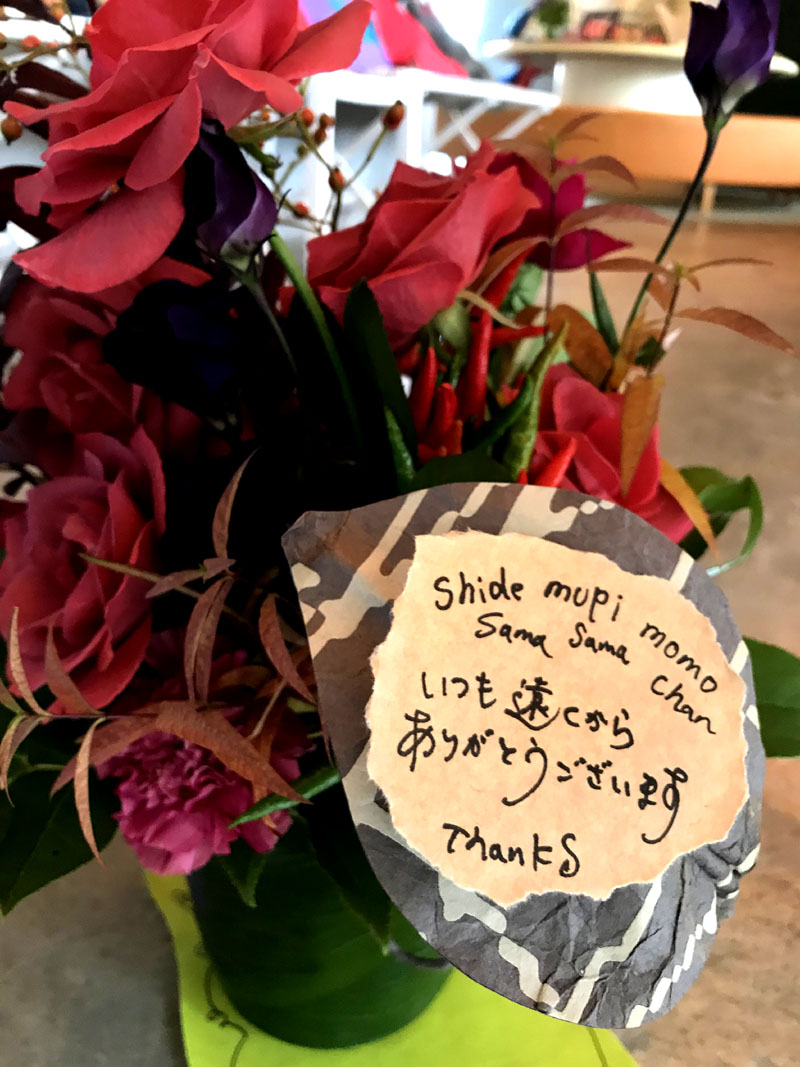 Shide mupi momo
Sama Sama chan
いつも遠くから
ありがとうございます
Thanks